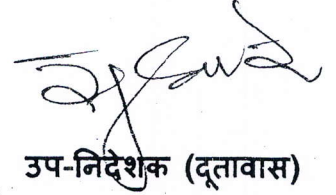 उप-निदेशक (दूतावास)